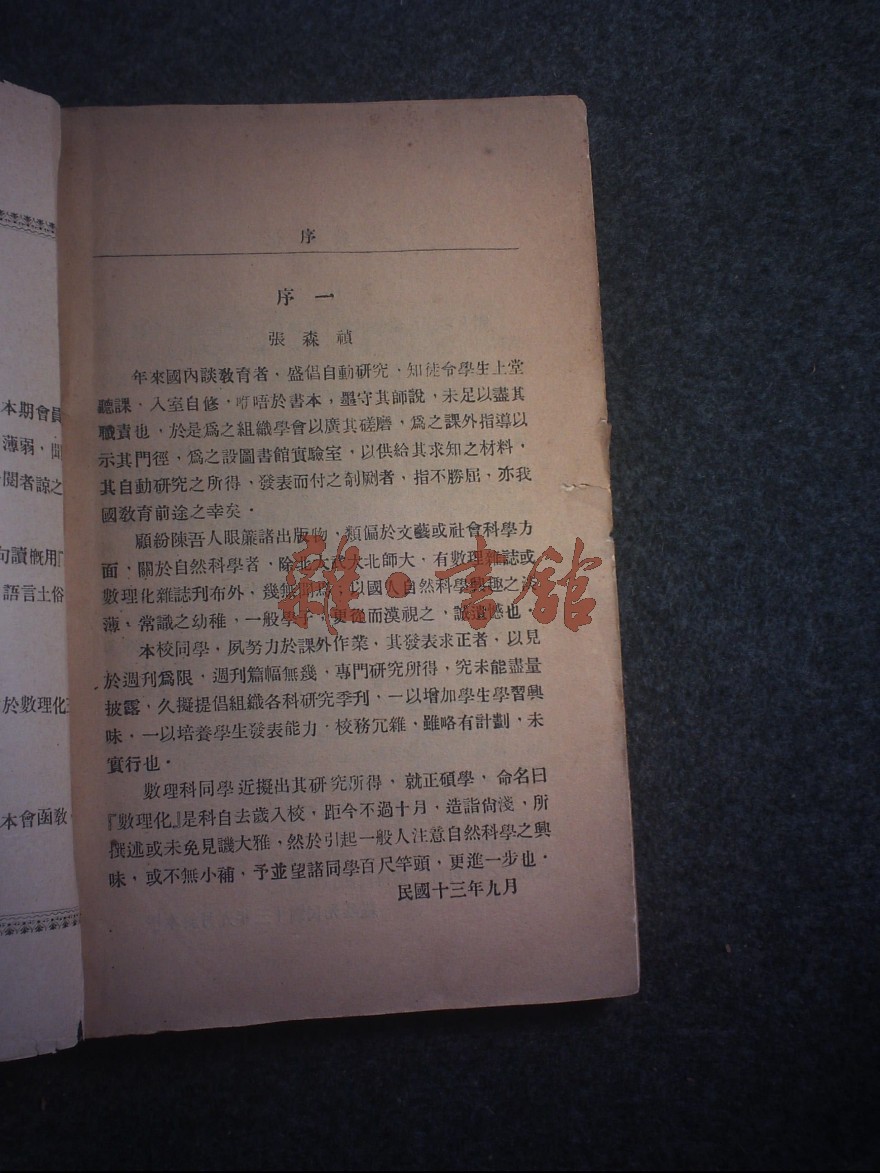 序
序一
張森禎
年來國內談敎育者，盛倡自動硏究，知徒令學生上堂
聽課，入室自修，咿唔於書本，墨守其師說，未足以盡其
職責也，於是爲之組織學會以廣其磋磨，爲之課外指導以
示其門徑，爲之設圖書館實驗室，以供給其求知之材料，
其自動硏究之所得，發表而付之剞劂者，指不勝屈，亦我
國敎育前途之幸矣．
顧紛陳吾人眼簾諸出版物，類偏於文藝或社會科學方
面，關於自然科學者，除北大武大北師大，有數理雜誌或
數理化雜誌刊布外，幾無；以國人自然科學興趣之
薄，常識之幼稚，一般學子，更從而漠視之，誠遺憾也．
本校同學，夙努力於課外作業，其發表求正者，以見
於週刊爲限，週刊篇幅無幾，專門硏究所得，究未能盡量
披露，久擬提倡組織各科硏究季刊，一以增加學生學習興
味，一以培養學生發表能力．校務冗雜，雖略有計劃，未
實行也．
數理科同學近擬出其硏究所得，就正碩學，命名曰
『數理化』是科自去歲入校，距今不過十月，造詣尙淺，所
撰述或未免見譏大雅，然於引起一般人注意自然科學之興
味，或不無小補，予並望諸同學百尺竿頭，更進一步也．
民國十三年九月
本期會員
薄弱，
閱者諒之
句讀槪用『
語言土俗
於數理化
本會函敎
雜·書館